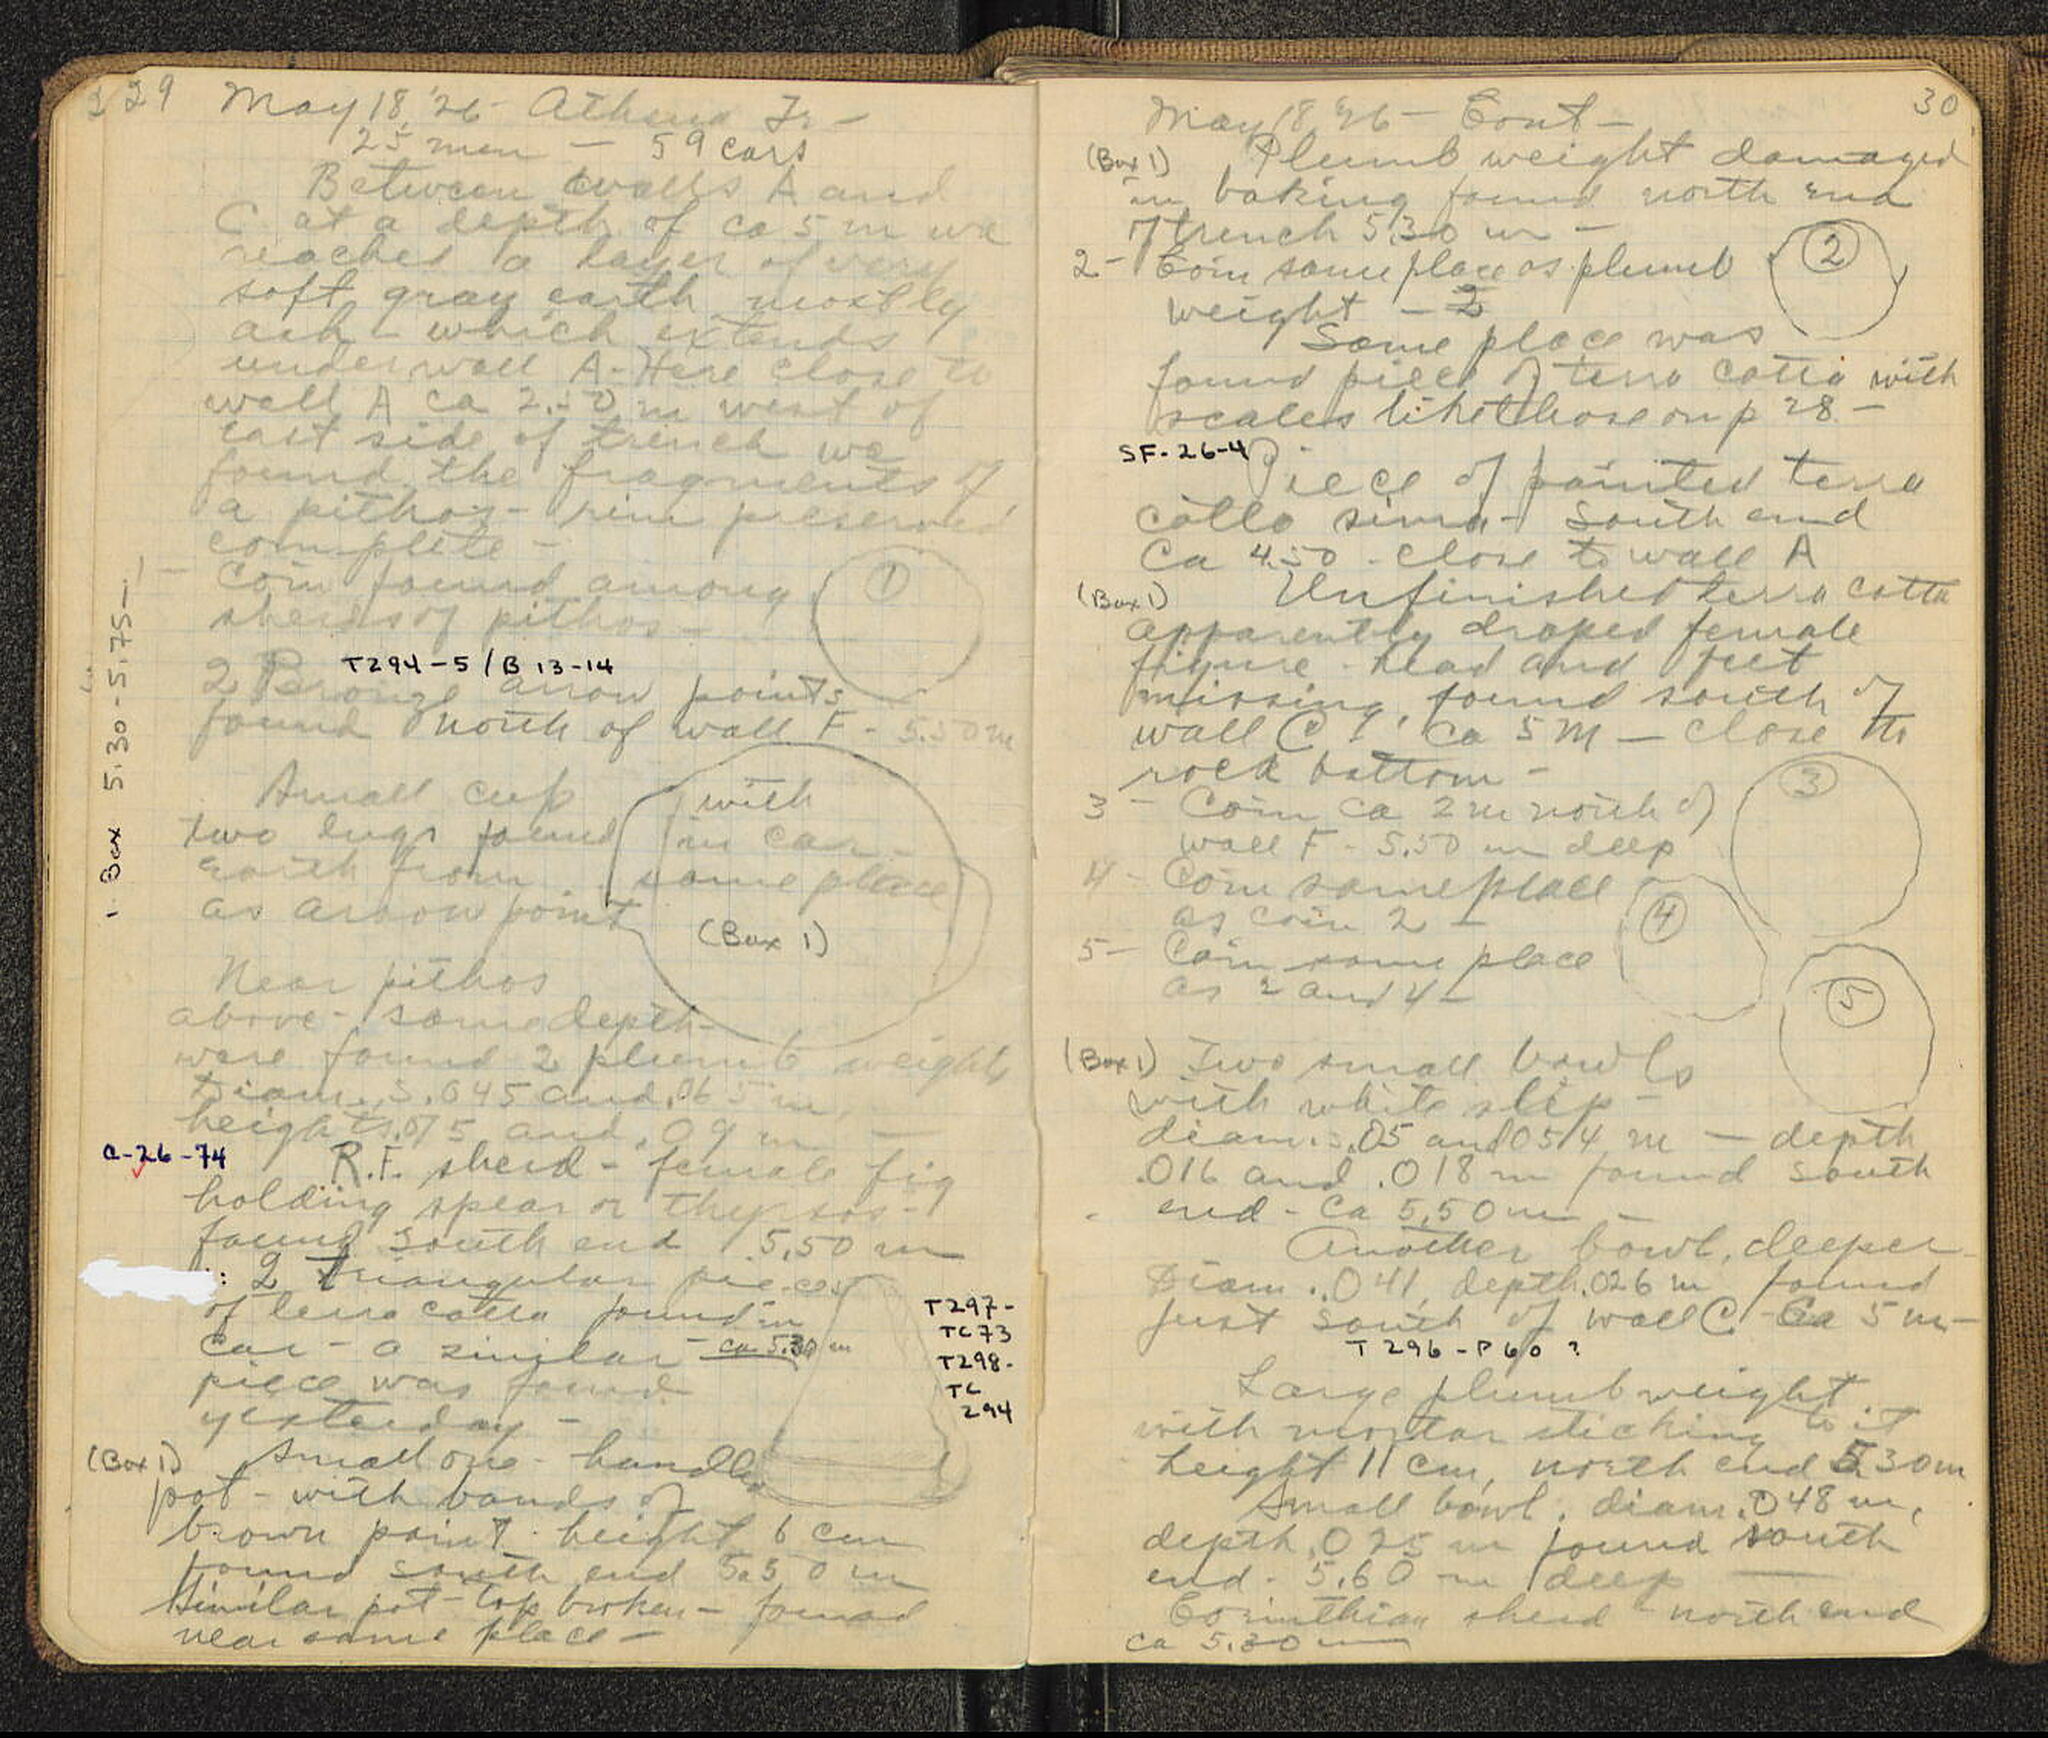 29 May 18, '26 - Athena Tr -
25 men - 59 cars
Between walls A and
C at a depth of ca 5 m we
reached a layer of very
soft gray earth mostly
ash - which extends
under wall A - Here close to
wall A ca 2.50 m west of
east side of trench we
found the fragments of
a pithos - rim preserved
complete -
1 - Coin found among
sherds of pithos -
①
T294-5 / B 13-14
2 Bronze arrow points
found north of wall F - 5.50 m
1 Box 5.30-5.75-
Small cup with
two lugs found in car-
earth from same place
as arrow point
(Box 1)
Near pithos
above - same depth -
were found 2 plumb weights
Diam.s .045 and .065 m,
heights .075 and .09 m -
C-26-74 R.F. sherd - female fig
holding spear or thyrsos -
found south end 5.50 m
2 Triangular pieces
of terra cotta found in
car - a similar - ca 5.30 m
piece was found
yesterday -
T297-
TC73
T298-
TC
294
(Box 1) Small one-handled
pot - with bands of
brown paint height 6 cm
found south end 5.50 m
Similar pot - top broken - found
near same place -
30
May 18 '26 - Cont -
(Box 1) Plumb weight damaged
in baking found north end
of trench 5.30 m -
2- Coin same place as plumb
weight - 2
②
Same place was
found piece of terra cotta with
scales like those on p 28. -
SF-26-4 Piece of painted terra
cotta sima - South end
Ca 4.50 - close to wall A
(Box 1) Unfinished terra cotta
apparently draped female
figure - head and feet
missing, found south of
wall C, ca 5 m - close to
rock bottom -
3 - Coin ca 2 m north of
wall F - 5.50 m deep
③
4 - Coin same place
as coin 2 -
④
5 - Coin same place
as 2 and 4 -
⑤
(Box 1) Two small bowls
with white slip -
diam.s .05 and .054 m - depth
.016 and .018 m found south
end - Ca 5.50 m -
Another bowl, deeper -
Diam. .041, depth .026 m found
just south of wall C - Ca 5 m -
T 296 - P 60 ?
Large plumb weight
with mortar sticking to it
height 11 cm, north end 5.30 m
Small bowl, diam. .048 m,
depth .025 m found south
end - 5.60 m deep -
Corinthian sherd - north end
ca 5.30 m